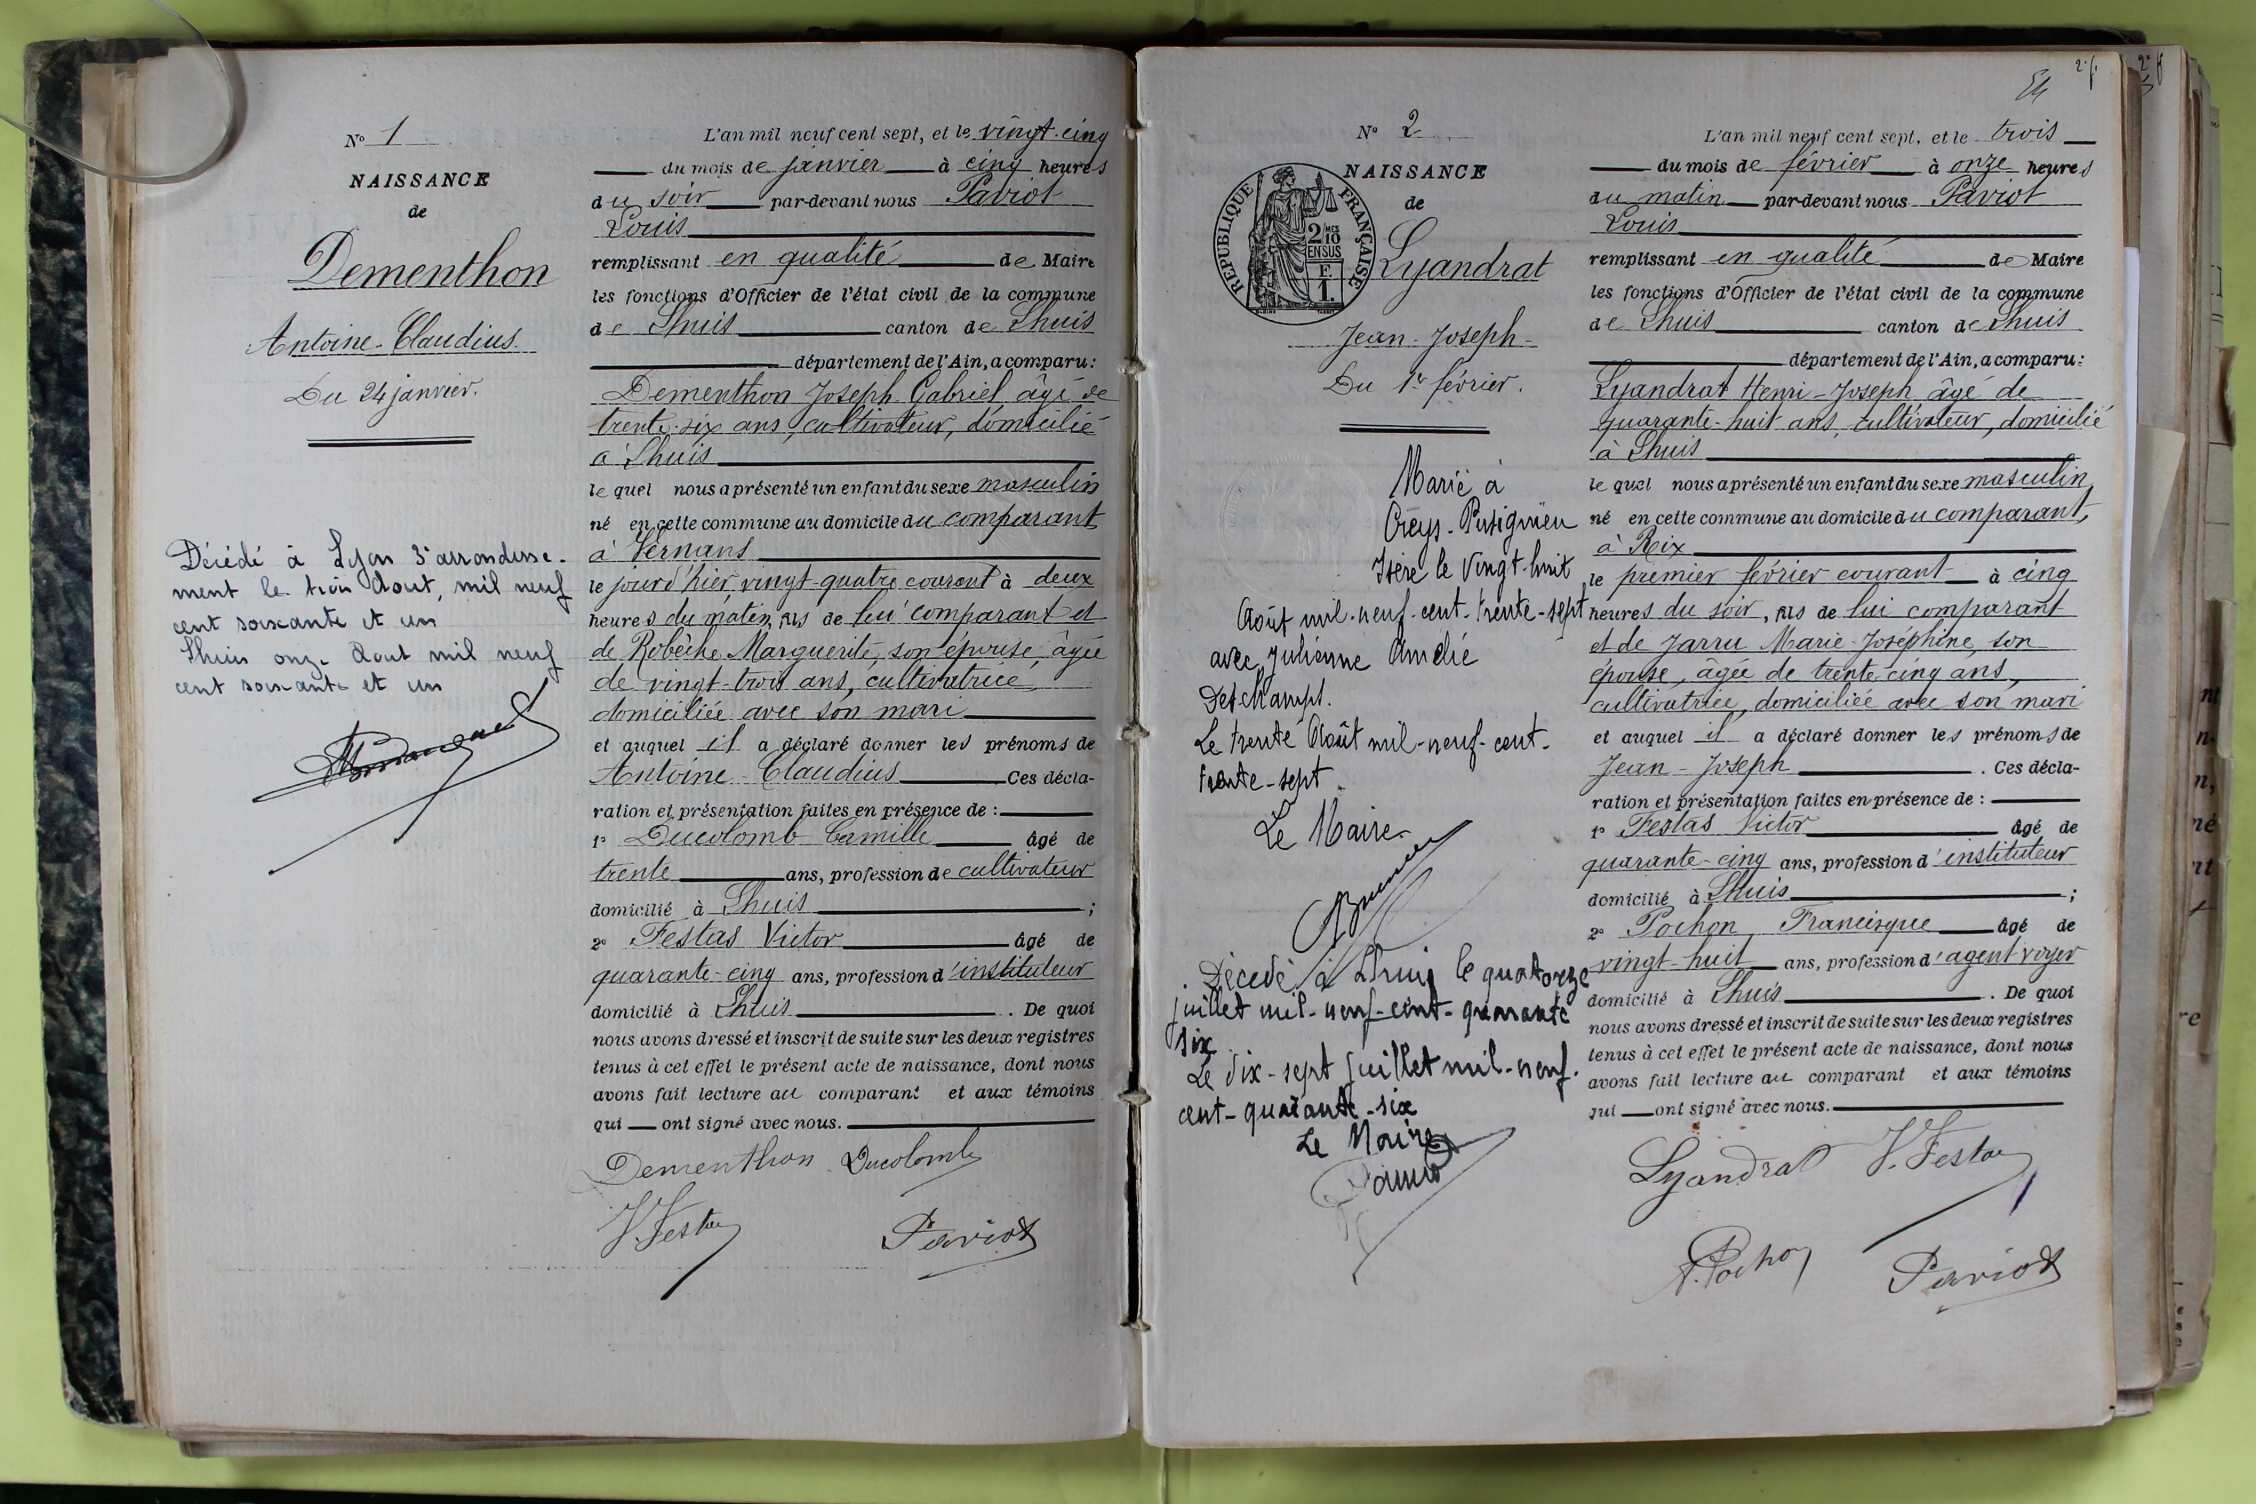 N° 1
NAISSANCE
de
Dementhon
Antoine-Claudius
Du 24 janvier.
Décédé à Lyon 3e arrondisse-
ment le trois Aout, mil neuf
cent soixante et un
Lhuis onze Aout mil neuf
cent soixante et un
L'an mil neuf cent sept, et le vingt-cinq
du mois de janvier à cinq heures
du soir par-devant nous Paviot
Louis
remplissant en qualité de Maire
les fonctions d'Officier de l'état civil de la commune
de Lhuis canton de Lhuis
département de l'Ain, a comparu :
Dementhon Joseph Gabriel âgé de
trente-six ans, cultivateur, domicilié
à Lhuis
lequel nous a présenté un enfant du sexe masculin
né en cette commune au domicile du comparant
à Vernans
le jour d'hier, vingt-quatre courant à deux
heures du matin, fils de lui comparant et
de Robèche Marguerite, son épouse, âgée
de vingt-trois ans, cultivatrice,
domiciliée avec son mari
et auquel il a déclaré donner les prénoms de
Antoine-Claudius Ces décla-
ration et présentation faites en présence de :
1° Ducolomb Camille âgé de
trente ans, profession de cultivateur
domicilié à Lhuis ;
2° Festas Victor âgé de
quarante-cinq ans, profession d'instituteur
domicilié à Lhuis . De quoi
nous avons dressé et inscrit de suite sur les deux registres
tenus à cet effet le présent acte de naissance, dont nous
avons fait lecture au comparant et aux témoins
qui ont signé avec nous.
Dementhon Ducolomb
V. Festas Paviot
2e f.
54
N° 2
NAISSANCE
de
REPUBLIQUE FRANÇAISE
2 MES 10 EN SUS
F. 1.
Lyandrat
Jean-Joseph-
Du 1er février.
Marié à
Creys-Pusignieu
Isère le Vingt huit
Août mil-neuf-cent-trente-sept
avec Julienne Amélie
Deschamps.
Le trente Août mil-neuf-cent-
trente-sept.
Le Maire
Décédé à Lhuis le quatorze
juillet mil-neuf-cent-quarante
six
Le dix-sept juillet mil-neuf-
cent-quarante-six
Le Maire
L'an mil neuf cent sept, et le trois
du mois de février à onze heures
du matin par-devant nous Paviot
Louis
remplissant en qualité de Maire
les fonctions d'Officier de l'état civil de la commune
de Lhuis canton de Lhuis
département de l'Ain, a comparu :
Lyandrat Henri-Joseph âgé de
quarante-huit ans, cultivateur, domicilié
à Lhuis
lequel nous a présenté un enfant du sexe masculin
né en cette commune au domicile du comparant,
à Rix
le premier février courant à cinq
heures du soir, fils de lui comparant
et de Jarru Marie-Joséphine, son
épouse, âgée de trente-cinq ans,
cultivatrice, domiciliée avec son mari
et auquel il a déclaré donner les prénoms de
Jean-Joseph . Ces décla-
ration et présentation faites en présence de :
1° Festas Victor âgé de
quarante-cinq ans, profession d'instituteur
domicilié à Lhuis ;
2° Pochon Francisque âgé de
vingt-huit ans, profession d'agent voyer
domicilié à Lhuis . De quoi
nous avons dressé et inscrit de suite sur les deux registres
tenus à cet effet le présent acte de naissance, dont nous
avons fait lecture au comparant et aux témoins
qui ont signé avec nous.
Lyandrat V. Festas
F. Pochon Paviot